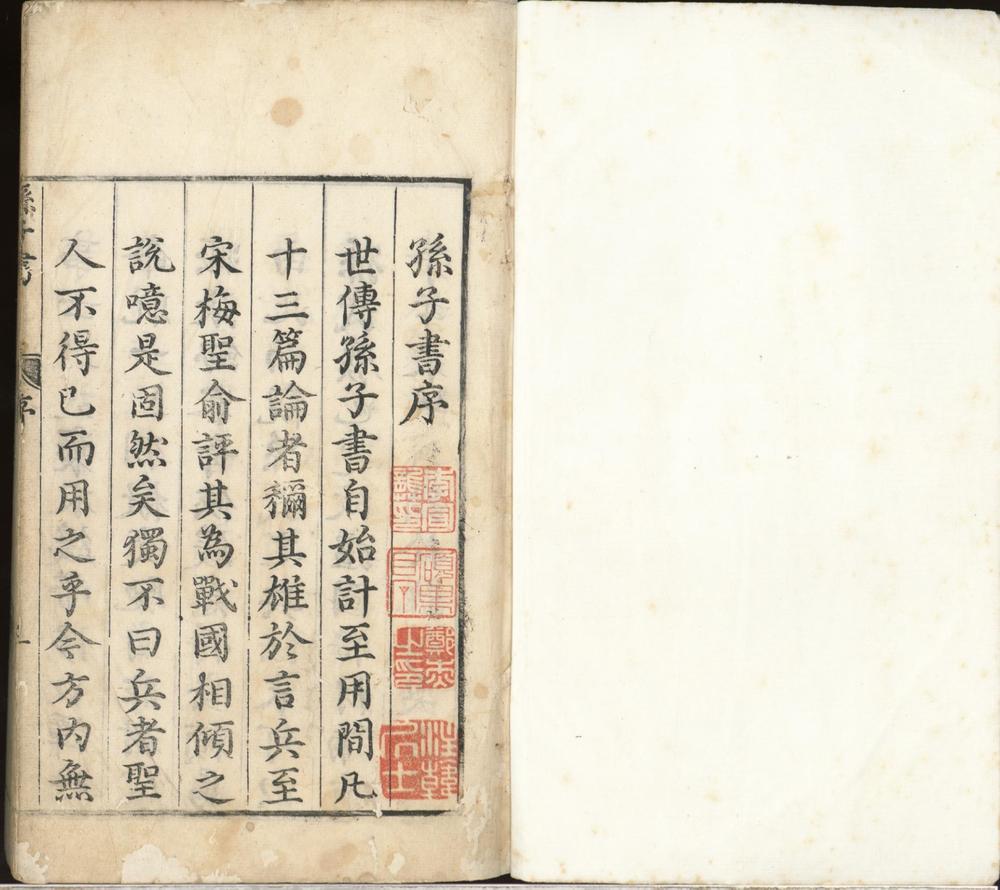 孫子書序
世傳孫子書自始計至用間凡
十三篇論者穪其雄於言兵至
宋梅聖俞評其為戰國相傾之
說噫是固然矣獨不曰兵者聖
人不得已而用之乎今方內無
孫子書
序
一